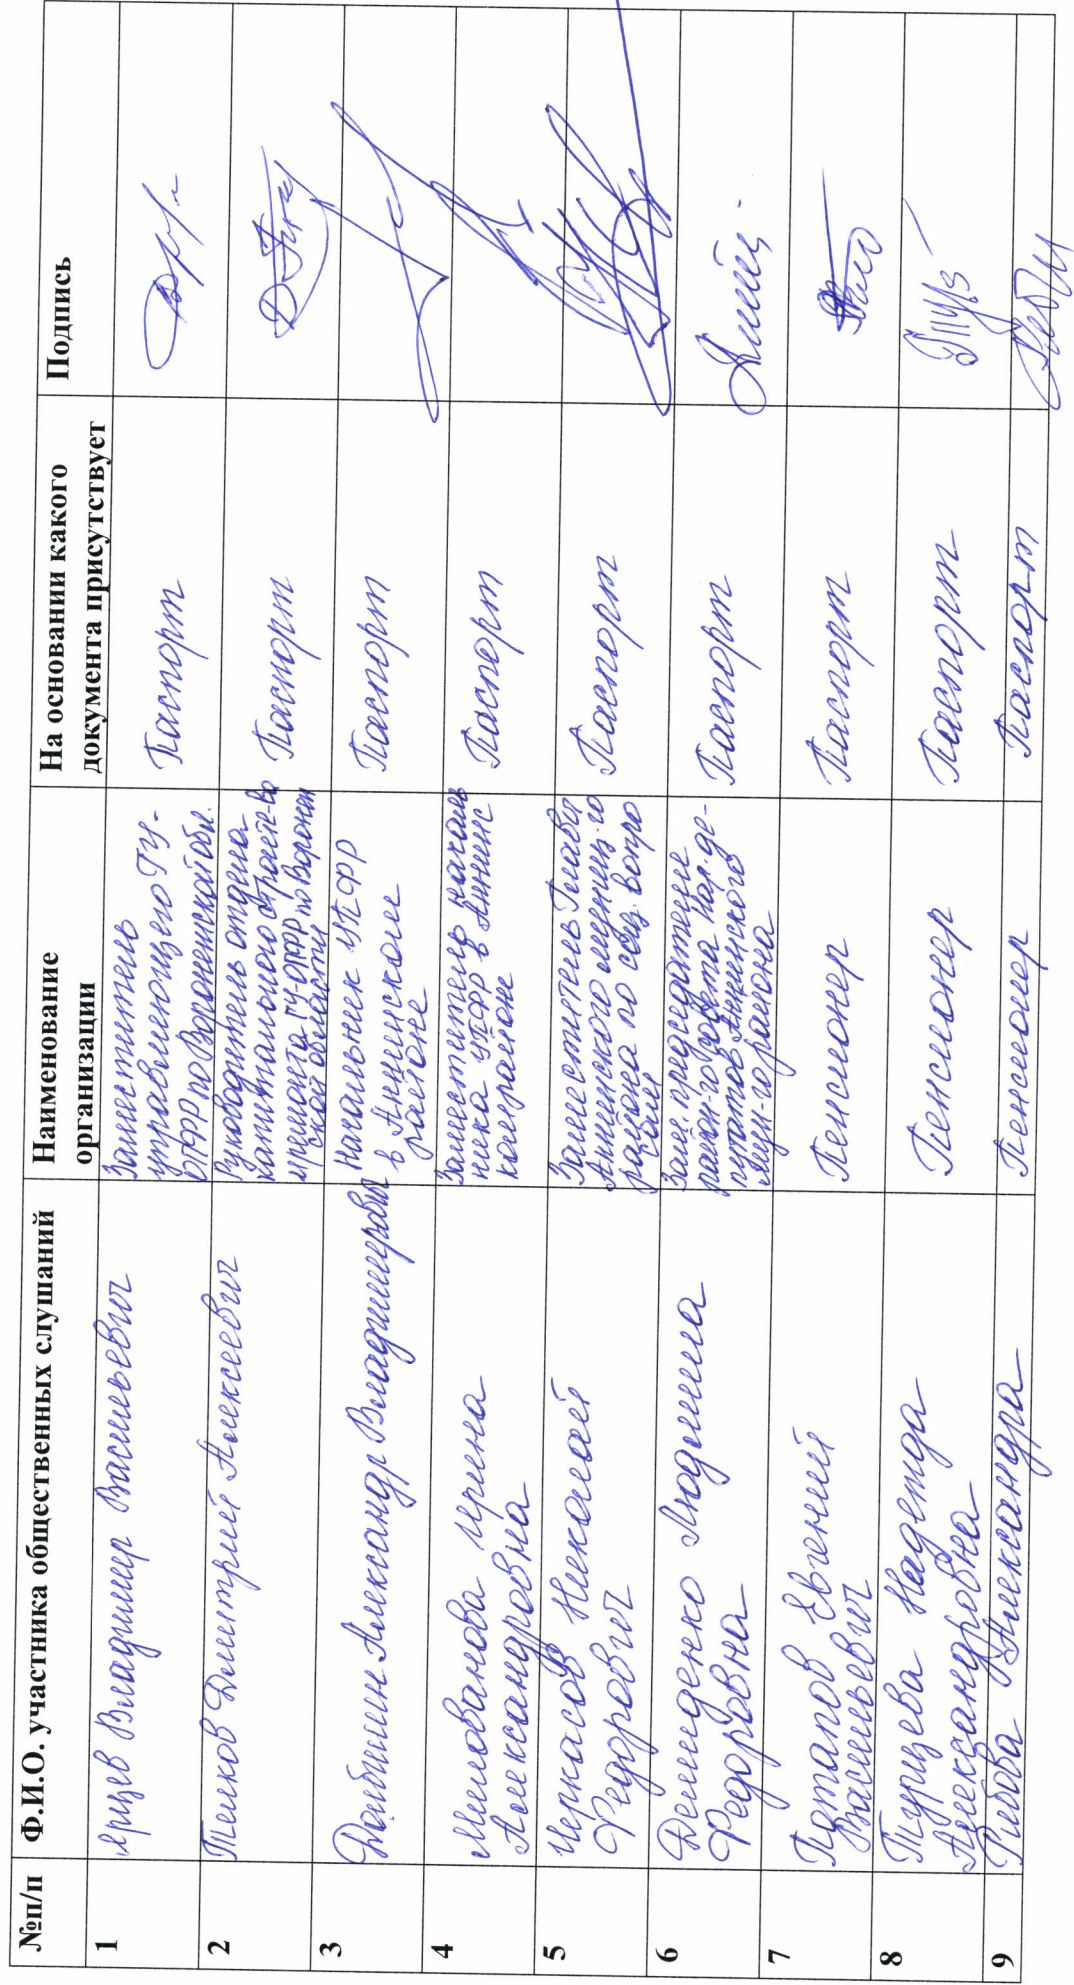 №п/п Ф.И.О. участника общественных слушаний Наименование организации На основании какого документа присутствует Подпись
1 Ярцев Владимир Васильевич
Заместитель
управляющего ГУ-
ОПФР по Воронежской обл.
Паспорт
2 Телков Дмитрий Алексеевич
Руководитель отдела
капитального строит-ва
и ремонта ГУ-ОПФР по Воронеж
ской области
Паспорт
3 Долбилин Александр Владимирович
Начальник УПФР
в Аннинском
районе
Паспорт
4 Милованова Ирина
Александровна
Заместитель началь
ника УПФР в Аннинс
ком районе
Паспорт
5 Черкасов Николай
Федорович
Заместитель Главы
Аннинского муницип-го
района по соц. вопро
сам
Паспорт
6 Демиденко Людмила
Федоровна
Зам. председателя
район-го совета нар. де-
путатов Аннинского
мун-го района
Паспорт
7 Потапов Евгений
Васильевич
Пенсионер
Паспорт
8 Турищева Надежда
Александровна
Пенсионер
Паспорт
9 Александра
Пенсионер
Паспорт